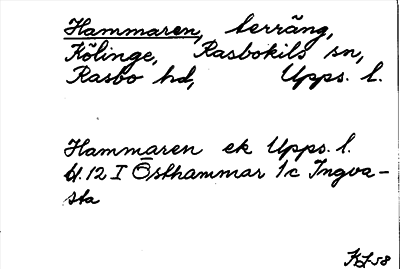 Hammaren, terräng,
Kölinge, Rasbokils sn,
Rasbo hd, Upps. l.
Hammaren ek Upps. l.
bl. 12 I Östhammar 1c Ingva-
sta
KJ 58